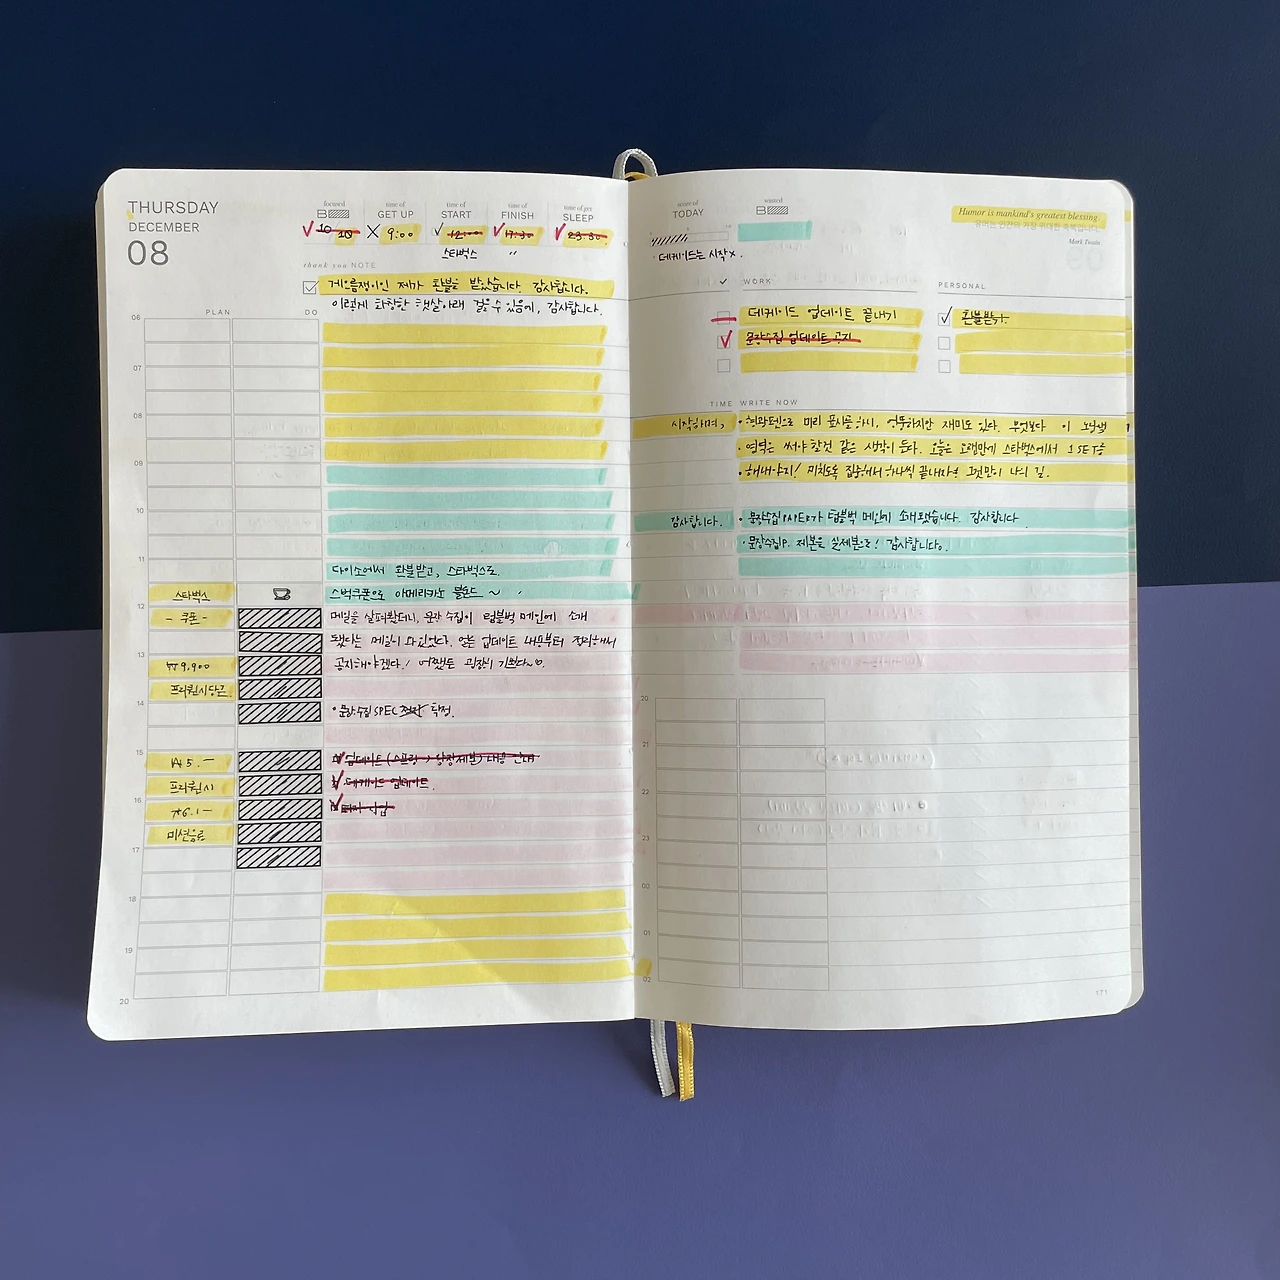 THURSDAY
DECEMBER
08
focused
time of
GET UP
time of
START
time of
FINISH
time of get
SLEEP
10 10
9:00
12:00
17:30
23:30
스타벅스
"
thank you NOTE
게으름쟁이인 제가 환불을 받았습니다. 감사합니다.
이렇게 화창한 햇살아래 걸을 수 있음에, 감사합니다.
PLAN
DO
06
07
08
09
10
11
다이소에서 환불받고, 스타벅스로.
스타벅스
스벅쿠폰으로 아메리카노 블론드 ~
12
- 쿠폰 -
메일을 살펴봤더니, 문장수집이 텀블벅 메인에 소개
됐다는 메일이 와있었다. 얼른 업데이트 내용부터 정리해서
13
₩9,900
공지해야겠다! 어쨌든 굉장히 기쁘다~
프리퀀시당근
14
• 문장수집 SPEC 확정.
15
₩5.-
업데이트 (스프링 → 양장제본) 내용 안내
프리퀀시
데케이드 업데이트.
16
₩6.1-
미션음료
17
18
19
20
score of
TODAY
wasted
데케이드는 시작x.
Humor is mankind's greatest blessing.
유머는 인간의 가장 위대한 축복입니다.
Mark Twain
WORK
PERSONAL
데케이드 업데이트 끝내기
환불받기.
문장수집 업데이트 공지
TIME
WRITE NOW
시작하며,
• 형광펜으로 미리 표시를 하니, 엉뚱하지만 재미도 있다. 무엇보다 이 노랑색
• 영역은 써야 할것 같은 생각이 든다. 오늘은 오랜만에 스타벅스에서 1 SET을
• 해내야지! 미친듯 집중해서 하나씩 끝내자. 그것만이 나의 길.
감사합니다.
• 문장수집PAPER가 텀블벅 메인에 소개됐습니다. 감사합니다
• 문장수집P. 제본을 실제본으로! 감사합니다.
20
21
22
23
00
01
02
171